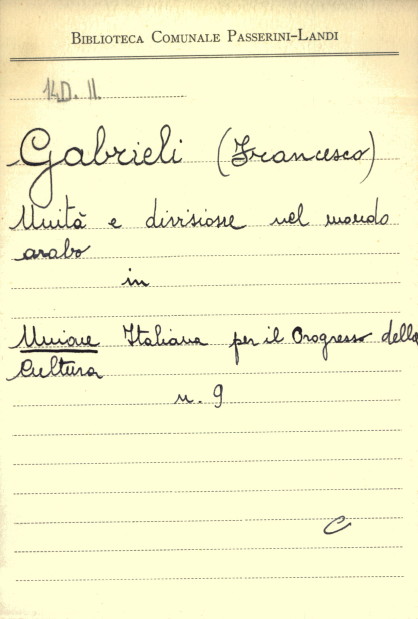 BIBLIOTECA COMUNALE PASSERINI-LANDI
14D. II.
Gabrieli (Francesco)
Unità e divisione nel mondo
arabo
in
Unione Italiana per il Progresso della
Cultura
n. 9
C